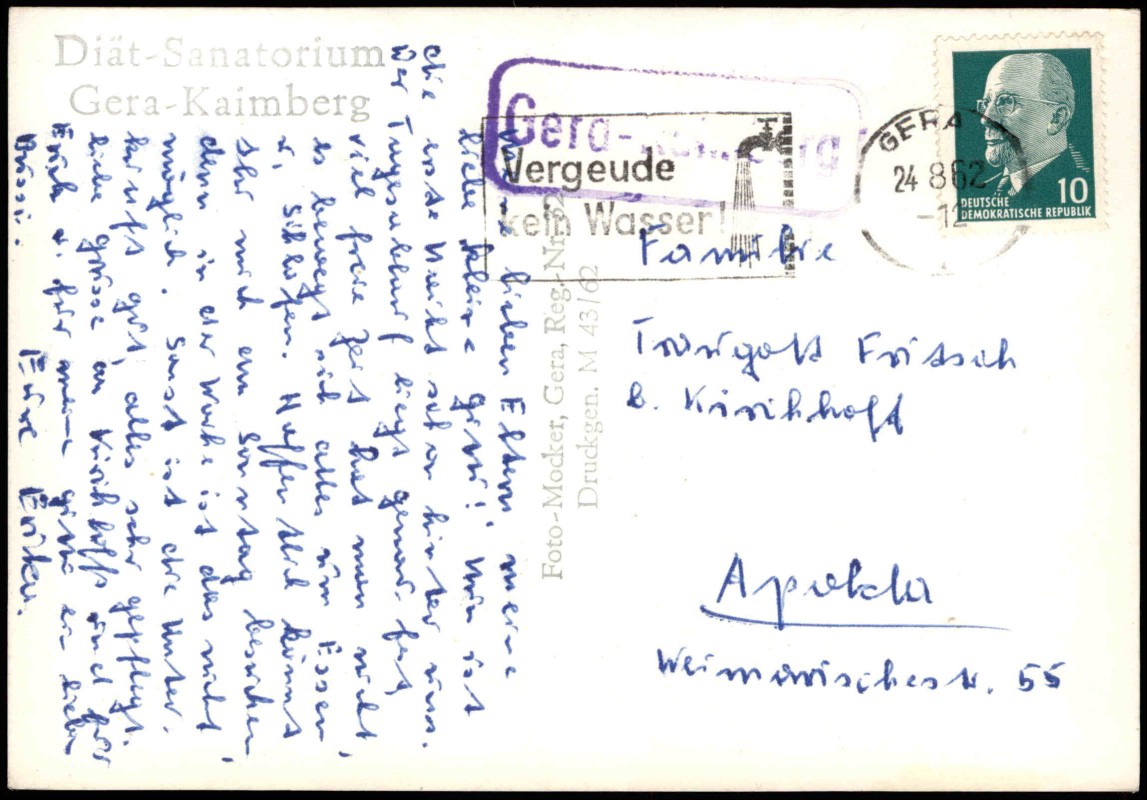 Diät-Sanatorium
Gera-Kaimberg
Meine lieben Eltern, meine
liebe kleine Gitti! Nun ist
die erste Woche schon hinter uns.
Der Tagesablauf liegt genau fest,
viel freie Zeit hat man nicht,
es bewegt sich alles um Essen
u. Schlafen. Hoffentlich könnt
Ihr mich am Sonntag besuchen
denn in der Woche ist das nicht
möglich. Sonst ist die Unter-
kunft gut, alles sehr gepflegt.
Liebe Grüsse an Kirchhoffs und für
Euch u. für meine Gitti ein liebes
Bussi.
Eure Erika.
Foto-Mocker, Gera, Reg.-Nr.
Druckgen. M 43/62
Gera-Kaimberg
Vergeude
kein Wasser!
GERA
24 8 62
-12
10
DEUTSCHE
DEMOKRATISCHE REPUBLIK
Familie
Traugott Fritsch
b. Kirchhoff
Apolda
Weimarischestr. 55